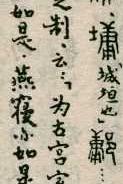 墉城垣也
之制、云…「为古宫
如是.燕寝亦如